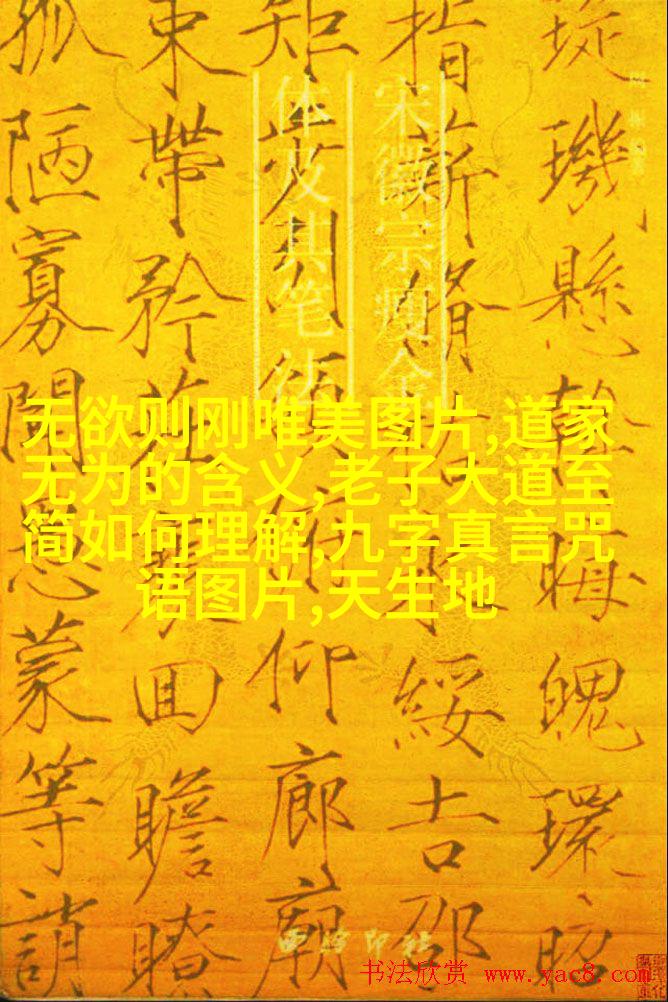 璇璣懸斡晦魄環照
指薪脩祜永綏吉劭
矩步引領俯仰廊廟
束帶矜莊徘回瞻眺
孤陋寡聞愚蒙等誚
宋徽宗瘦金
体及其笔法
无欲则刚唯美图片,道家
无为的含义,老子大道至
简如何理解,九字真言咒
语图片,天生地
西泠印社
书法欣赏 www.yac8.com